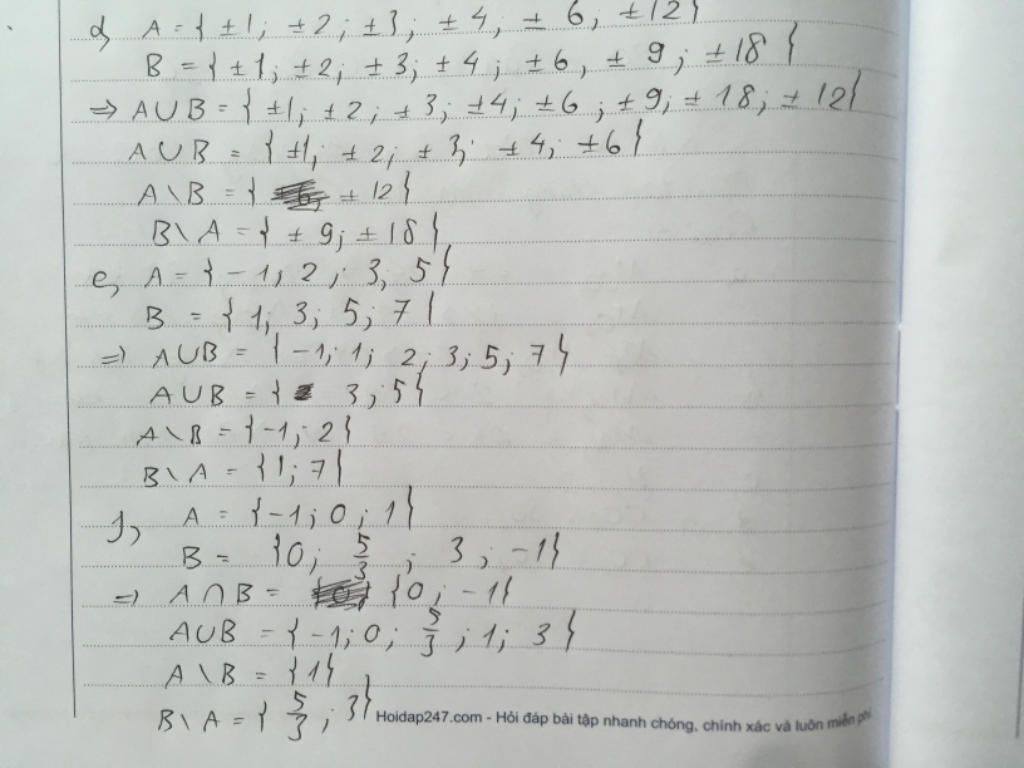 d, A = { ±1; ±2; ±3; ±4; ± 6; ±12}
B = { ±1; ±2; ±3; ±4; ±6, ± 9; ±18 }
=> A∪B = { ±1; ±2; ±3; ±4; ±6; ±9; ±18; ±12}
A∪B = { ±1; ±2; ±3; ±4; ±6}
A\B = { ±12}
B\A = { ±9; ±18}
e, A = {-1; 2; 3, 5}
B = { 1; 3; 5; 7 }
=> A∪B = {-1; 1; 2; 3; 5; 7}
A∪B = { 3; 5}
A\B = {-1; 2}
B\A = {1; 7}
f, A = {-1; 0; 1}
B = {0; 5/3; 3; -1}
=> A∩B = {0; -1}
A∪B = {-1; 0; 5/3; 1; 3}
A\B = {1}
B\A = { 5/3; 3}
Hoidap247.com - Hỏi đáp bài tập nhanh chóng, chính xác và luôn miễn phí